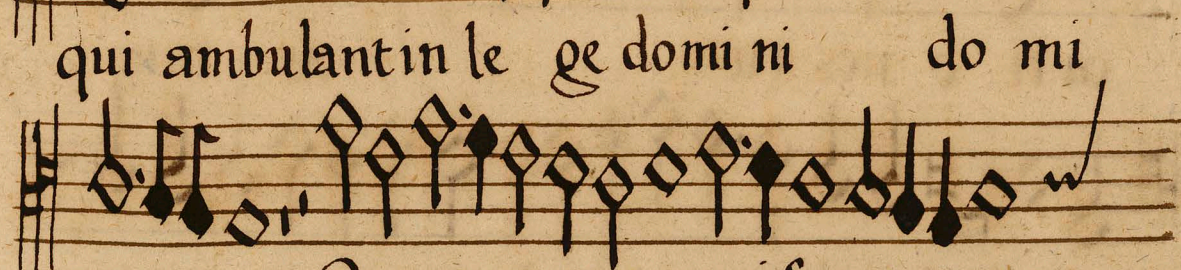 qui ambulant in le ge domini do mi